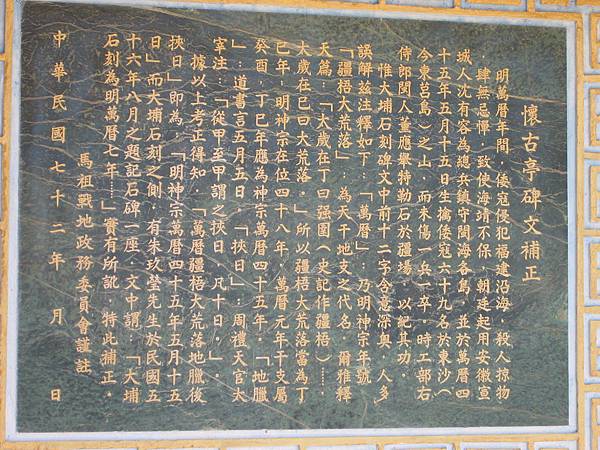 懷古亭碑文補正
明萬曆年間，倭寇侵犯福建沿海，殺人掠物
，肆無忌憚，致使海靖不保，朝廷起用安徽宣
城人沈有容為總兵鎮守閩海各島，並於萬曆四
十五年五月十五日生擒倭寇六十九名於東沙（
今東莒島）之山，而未傷一兵一卒，時工部右
侍郎閩人董應舉特勒石於疆場，以紀其功。
惟大埔石刻碑文中前十二字含意深奧，人多
誤解茲注釋如下：「萬曆」，乃明神宗年號，
「彊梧大荒落」：為天干地支之代名，爾雅釋
天篇：「太歲在丁曰强圉（史記作彊梧）……
太歲在巳曰大荒落。」所以彊梧大荒落當為丁
巳年，明神宗在位四十八年，萬曆元年干支屬
癸酉，丁巳年應為神宗萬曆四十五年。「地臘
」：道書言五月五日。「挾日」：周禮天官太
宰注：「從甲至甲謂之挾日，凡十日。」。
據以上考正得知，「萬曆彊梧大荒落地臘後
挾日」即為，「明神宗萬曆四十五年五月十五
日」而大埔石刻之側，有朱玖瑩先生於民國五
十六年八月之題記石碑一座，文中謂：「大埔
石刻為明萬曆七年……」實有所訛，特此補正。
馬祖戰地政務委員會謹註
中華民國七十二年　月　日